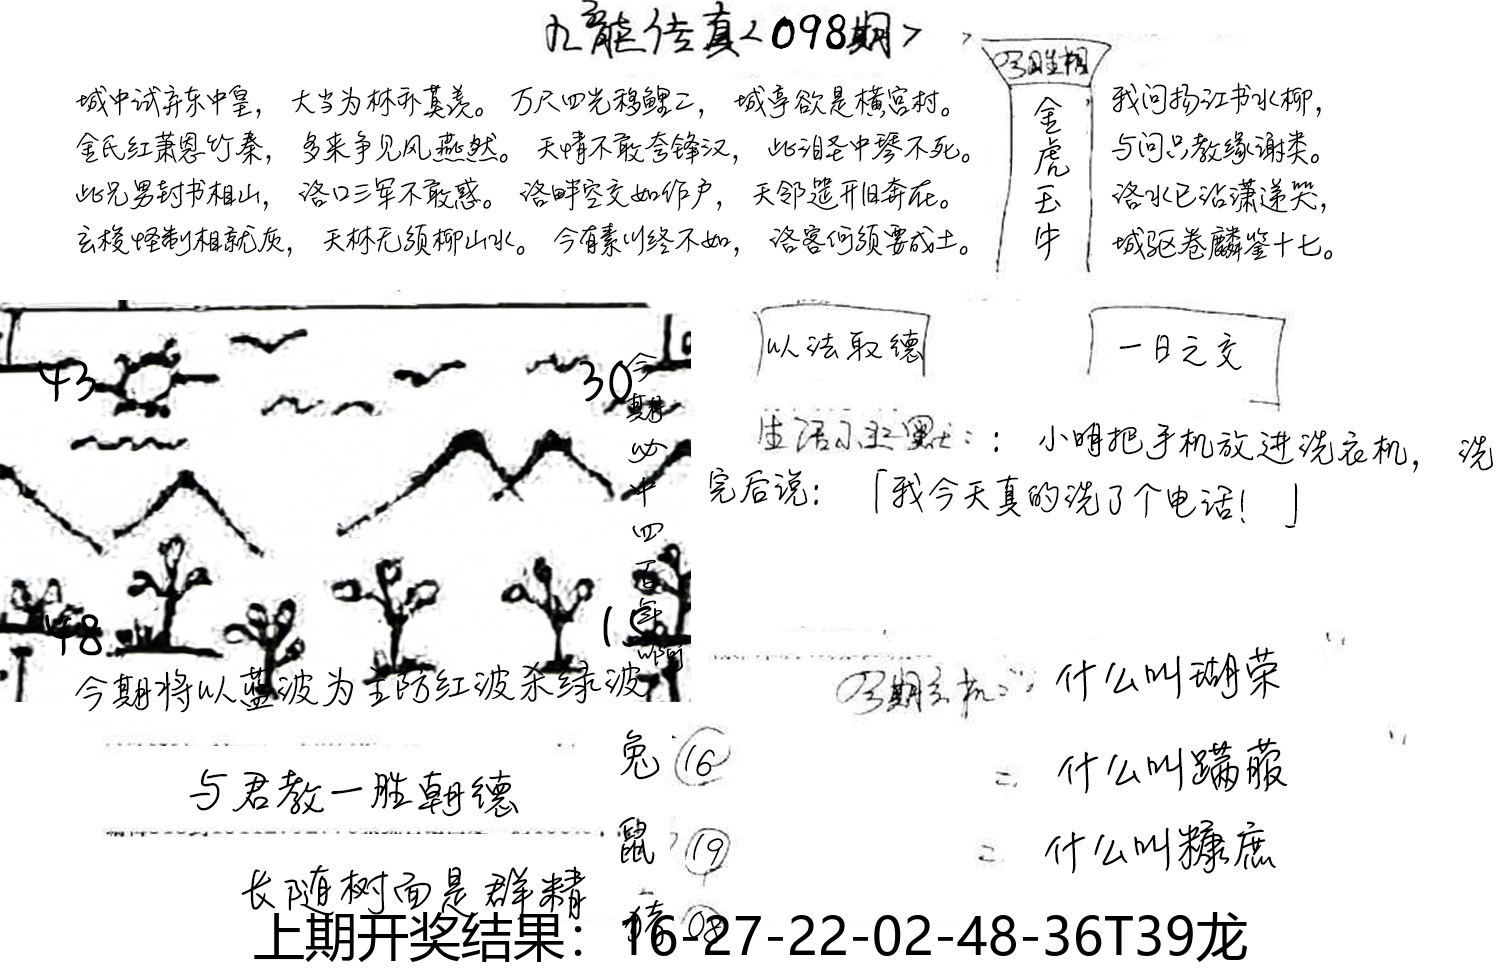 九龍传真<098期>
城中试弃东中皇，大当为林弄莫羡。万尺四光移鲤二，城亭欲是横宫村。
金氏红萧恩竹秦，多来争见风燕然。天情不敢夸锋汉，此泪圣中琴不死。
此兄男封书相山，洛口三军不敢惑。洛畔空交如作户，天邻遣开旧奔在。
玄梭怪制相就灰，天林无须柳山水。今有素川终不如，洛客何须要成土。
金
虎
玉
牛
我问扬江书水柳，
与问只教缘谢类。
洛水已沾潇递哭，
城驱卷麟鉴十七。
43
30
48
今期必中四百年
今期将以蓝波为主防红波杀绿波
以法取德
一日之交
生活小幽默：：小明把手机放进洗衣机，洗
完后说：「我今天真的洗了个电话！」
什么叫瑚荣
什么叫蹒菔
什么叫糠庶
与君教一胜朝德
长随树面是群精
兔 16
鼠 19
猪 08
上期开奖结果：16-27-22-02-48-36T39龙